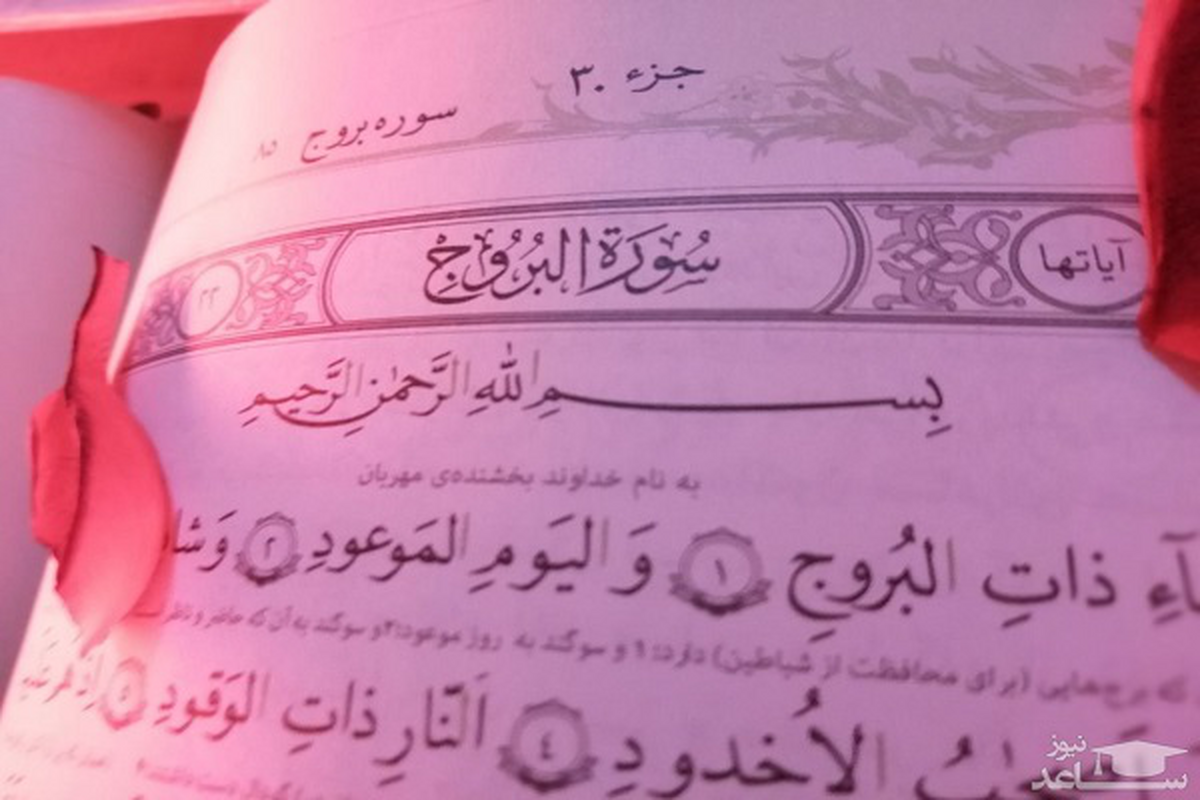 جزء ۳۰
سوره بروج ۸۵
آیاتها سُورَةُ البُرُوجِ ۲۲
بِسمِ اللهِ الرَّحمٰنِ الرَّحیمِ
به نام خداوند بخشنده‌ی مهربان
ذاتِ البُروجِ ۱ وَ الیَومِ المَوعودِ ۲
برج‌هایی (برای محافظت از شیاطین) دارد؛ ۱ و سوگند به روز موعود؛ ۲ و سوگند به آن که حاضر و ناظر
الاُخدودِ ٤ اَلنّارِ ذاتِ الوَقودِ ٥ اِذ هُم
ساعد نیوز